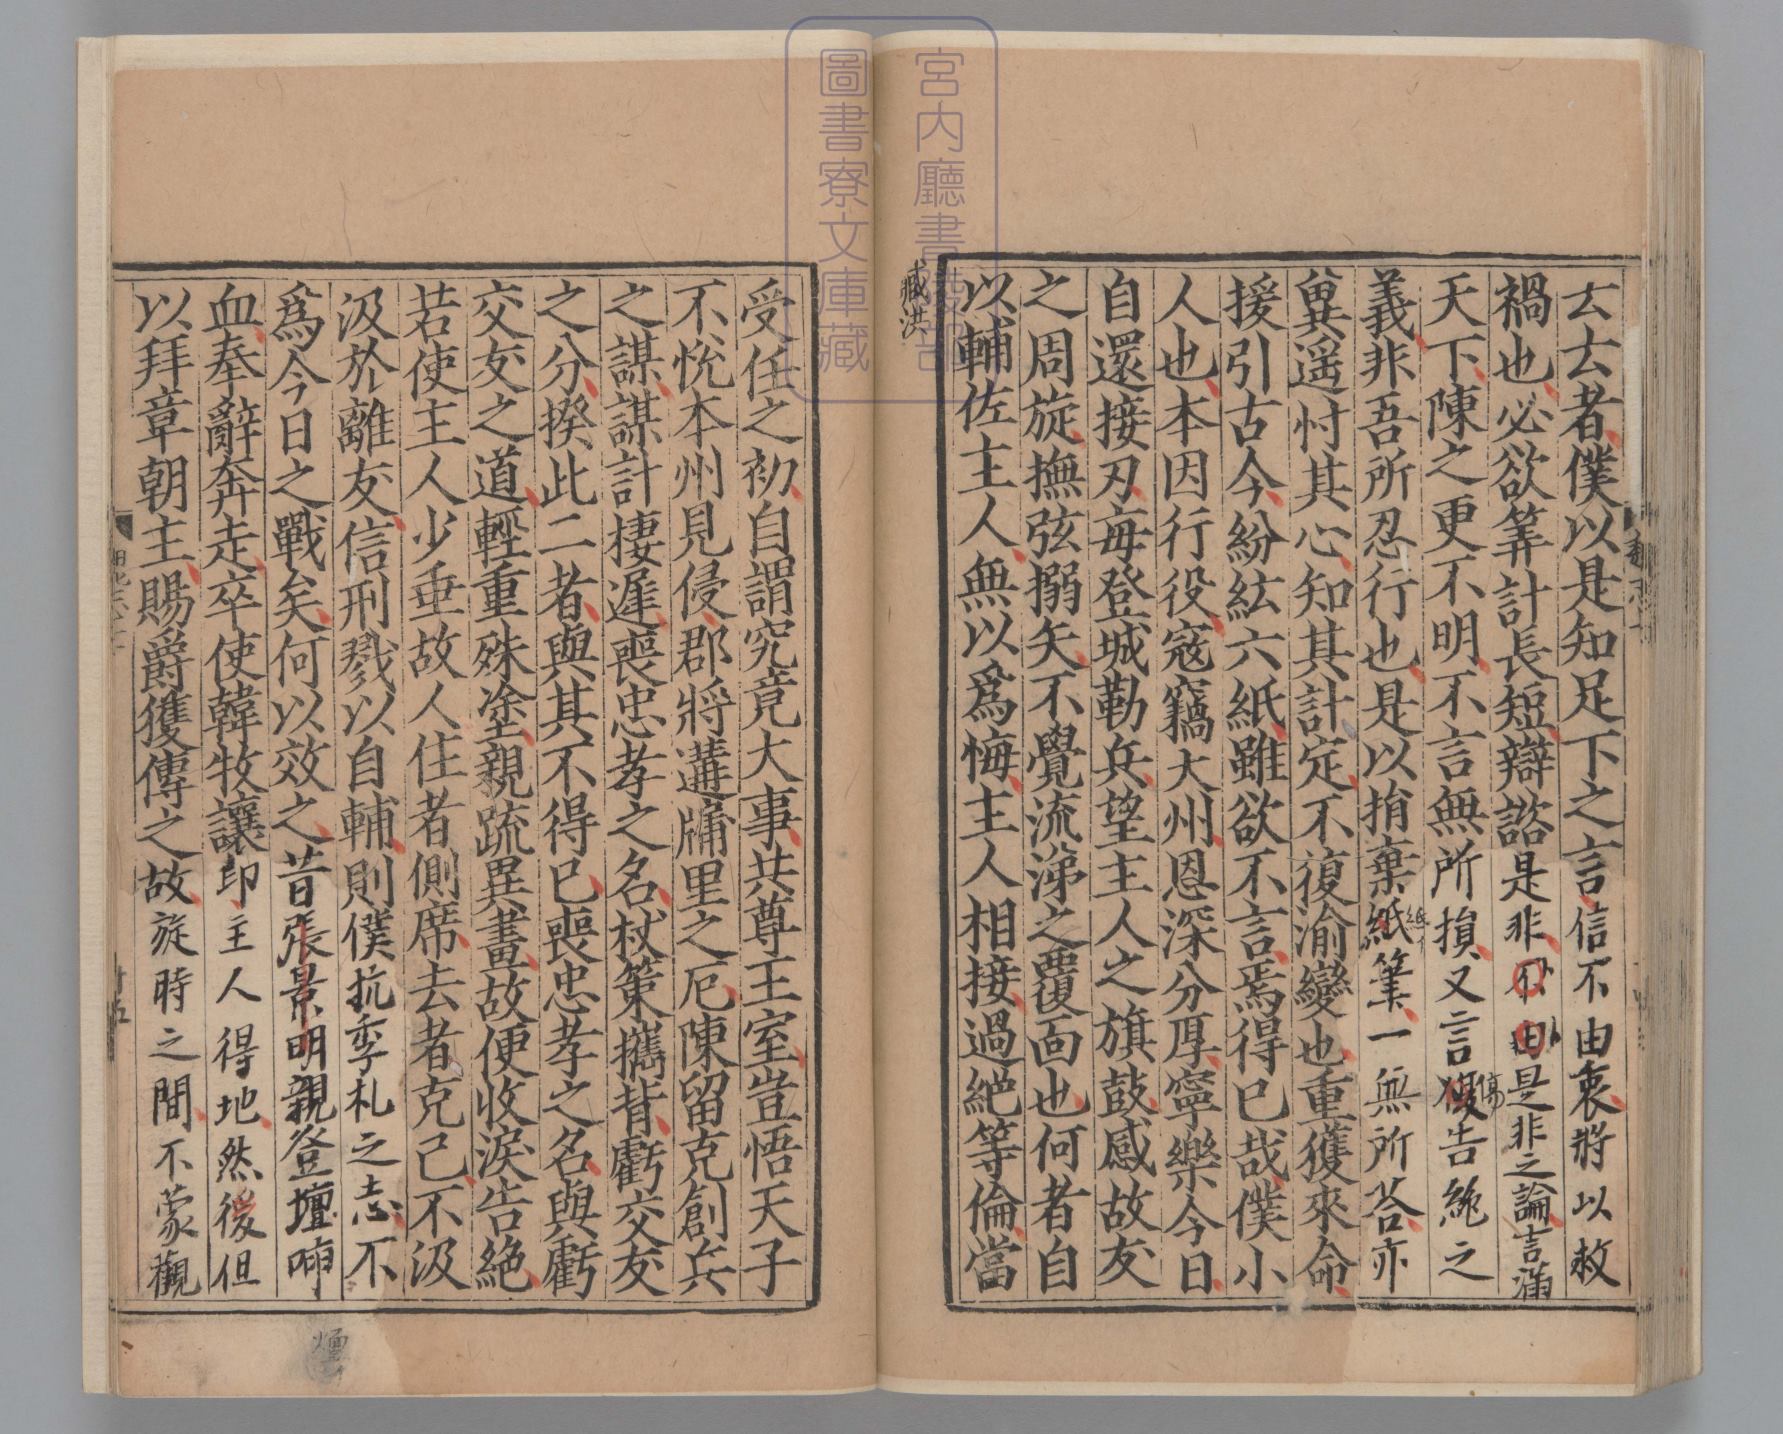 去去者僕以是知足下之言信不由衷將以救
禍也必欲筭計長短辯諮是非是非之論言滿
天下陳之更不明不言無所損又言傷告絶之
義非吾所忍行也是以捐棄紙筆一無所荅亦
兾遥忖其心知其計定不復渝變也重獲來命
援引古今紛紜六紙雖欲不言焉得已哉僕小
人也本因行役寇竊大州恩深分厚寧樂今日
自還接刃毎登城勒兵望主人之旗鼓感故友
之周旋撫弦搦矢不覺流涕之覆面也何者自
以輔佐主人無以爲悔主人相接過絶等倫當
臧洪
受任之初自謂究竟大事共尊王室豈悟天子
不恱本州見侵郡將遘牖里之厄陳留克創兵
之謀謀計棲遲喪忠孝之名杖策攜背虧交友
之分揆此二者與其不得已喪忠孝之名與虧
交友之道輕重殊塗親疏異畫故便收淚告絶
若使主人少垂故人住者側席去者克己不汲
汲於離友信刑戮以自輔則僕抗季札之志不
爲今日之戰矣何以效之昔張景明親登壇喢
血奉辭奔走卒使韓牧讓印主人得地然後但
以拜章朝主賜爵獲傳之故旋時之間不蒙觀
宮内廳書陵部
圖書寮文庫藏